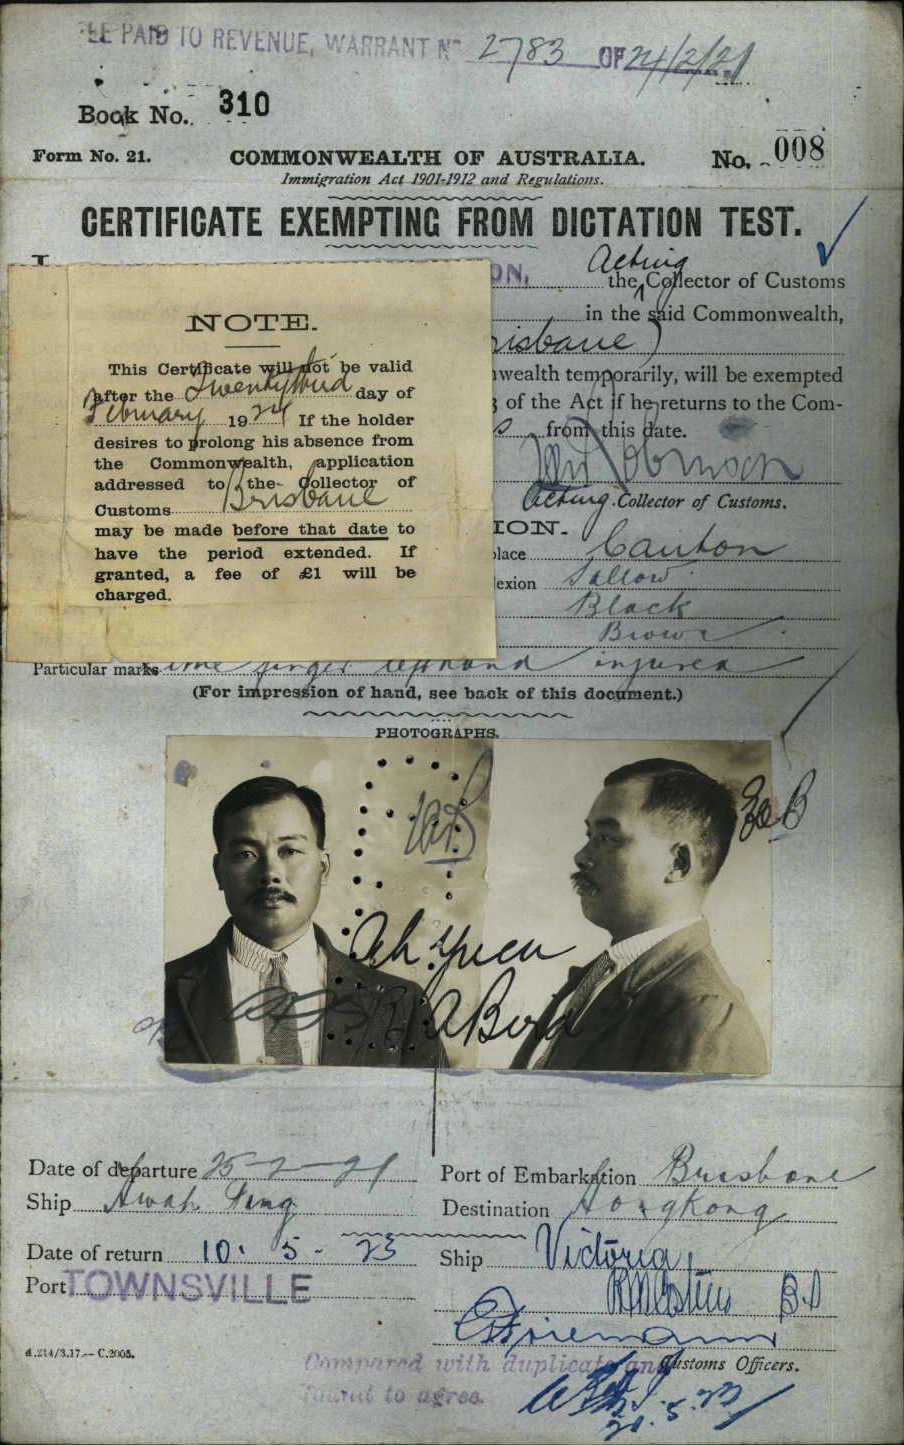 EE PAID TO REVENUE, WARRANT No 2783 OF 24/2/21
Book No. 310
Form No. 21.
COMMONWEALTH OF AUSTRALIA.
No. 008
Immigration Act 1901-1912 and Regulations.
CERTIFICATE EXEMPTING FROM DICTATION TEST.
I
ON,
Acting
the Collector of Customs
in the said Commonwealth,
risbane)
wealth temporarily, will be exempted
of the Act if he returns to the Com-
s from this date.
Acting Collector of Customs.
ION.
place Canton
lexion Sallow
Black
Brown
NOTE.
This Certificate will not be valid
after the Twentythird day of
February 1924 If the holder
desires to prolong his absence from
the Commonwealth, application
addressed to the Collector of
Customs Brisbane
may be made before that date to
have the period extended. If
granted, a fee of £1 will be
charged.
Particular marks finger left hand injured
(For impression of hand, see back of this document.)
PHOTOGRAPHS.
Ah Yuen
R A Bird
Date of departure 25-2-21
Port of Embarkation Brisbane
Ship Hwah Ping
Destination Hongkong
Date of return 10. 5. 23
Ship Victoria
Port TOWNSVILLE
Customs Officers.
d.214/3.17.—C.2005.
Compared with duplicate and
found to agree.